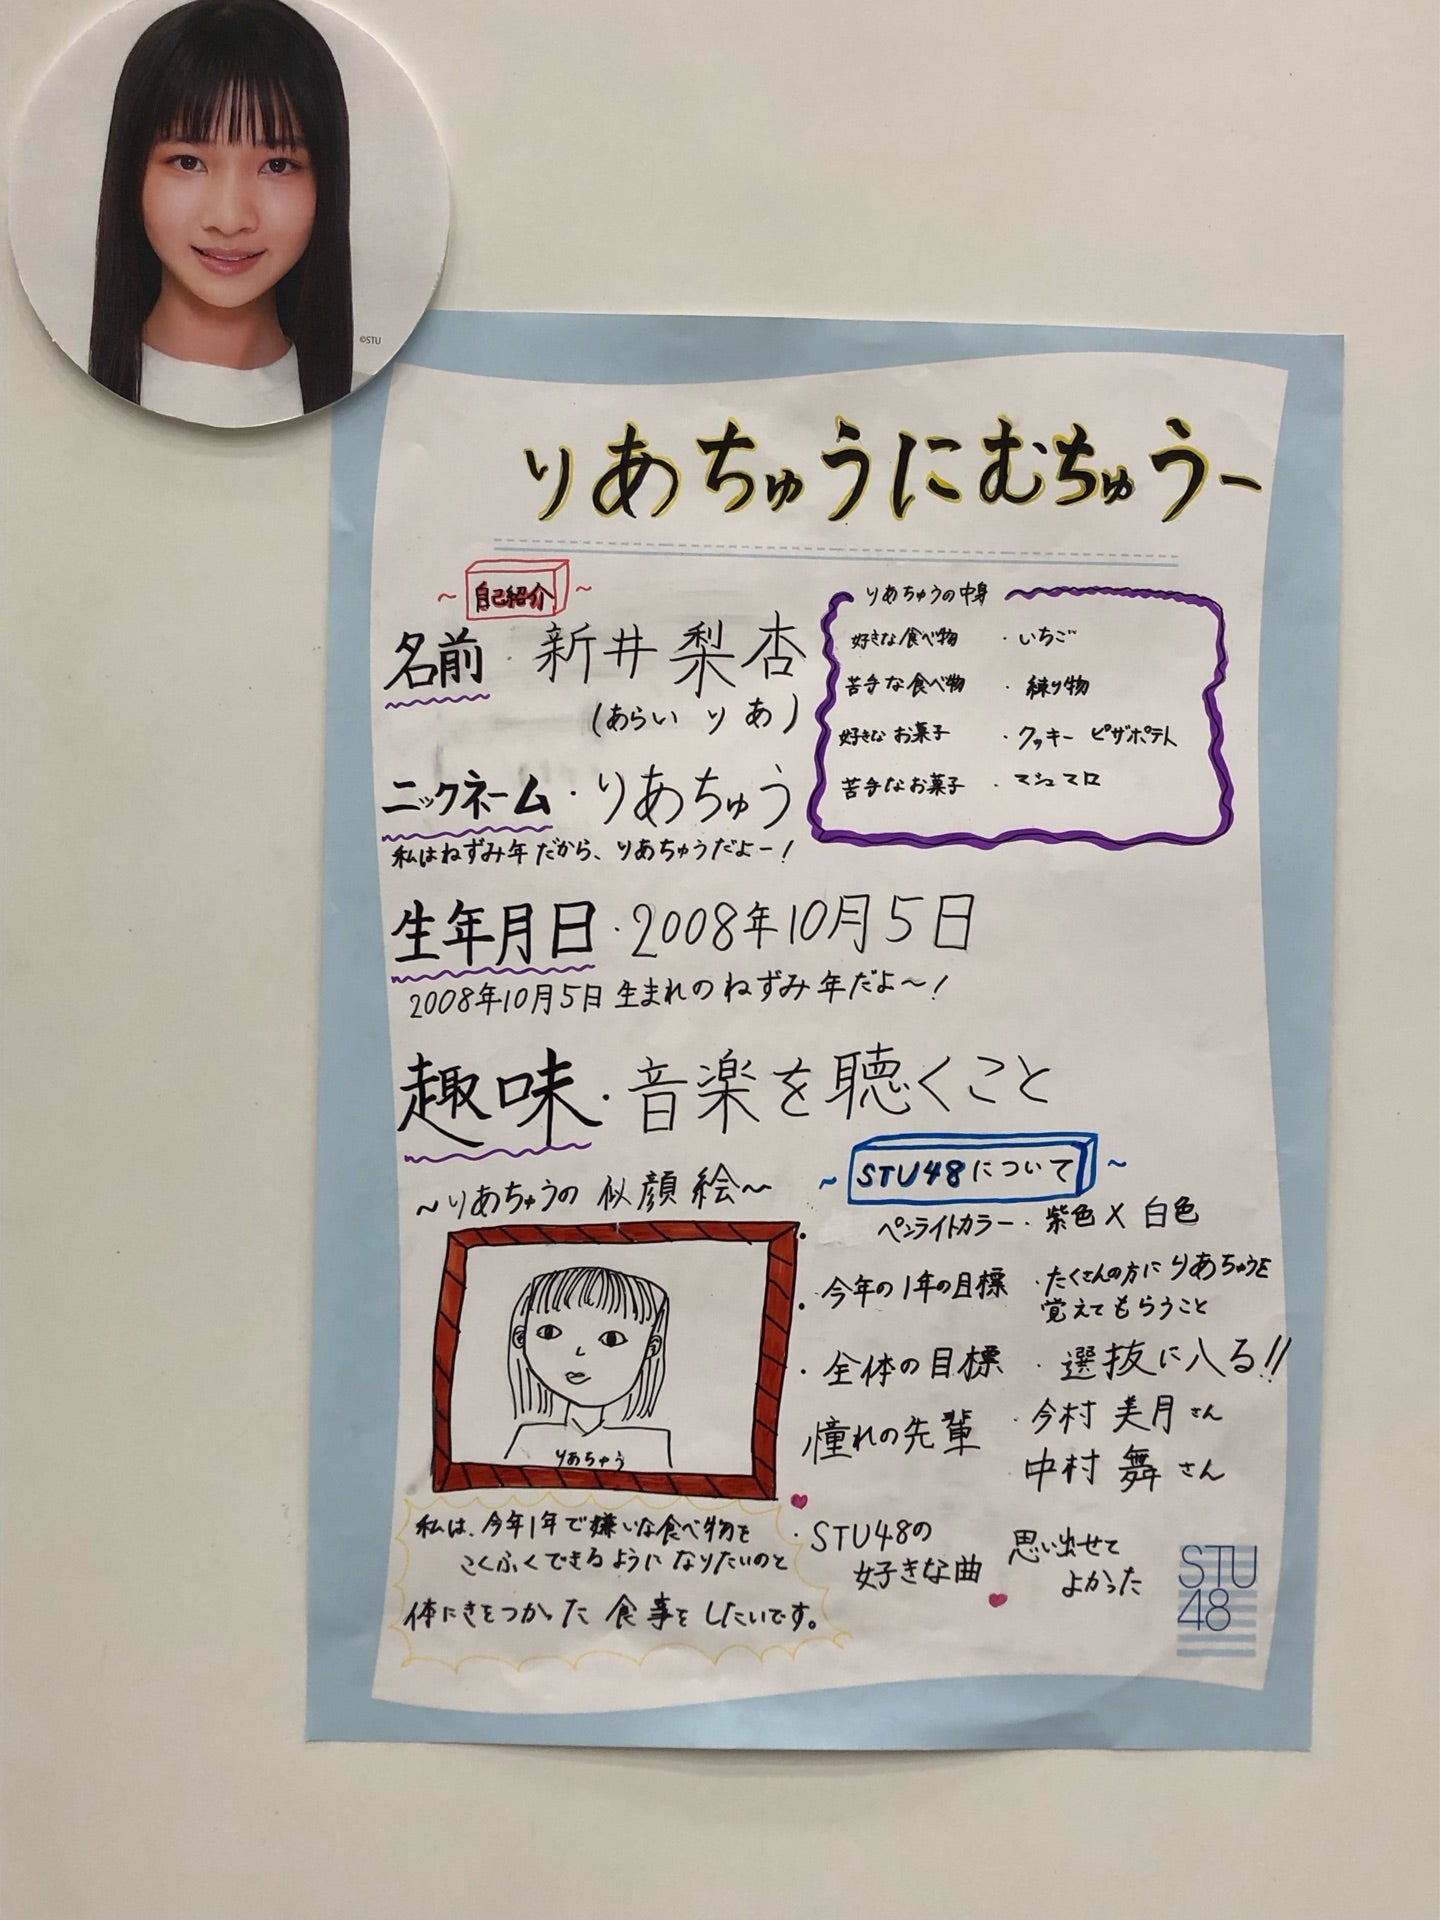 ©STU
りあちゅうにむちゅうー
~ 自己紹介 ~
名前・新井梨杏
(あらい りあ)
ニックネーム・りあちゅう
私はねずみ年だから、りあちゅうだよー!
りあちゅうの中身
好きな食べ物 ・いちご
苦手な食べ物 ・練り物
好きなお菓子 ・クッキー ピザポテト
苦手なお菓子 ・マシュマロ
生年月日・2008年10月5日
2008年10月5日生まれのねずみ年だよ~!
趣味・音楽を聴くこと
~りあちゅうの似顔絵~
りあちゅう
私は、今年1年で嫌いな食べ物を
こくふくできるようになりたいのと
体にきをつかった食事をしたいです。
~ STU48について ~
・ペンライトカラー・紫色×白色
・今年の1年の目標 ・たくさんの方にりあちゅうを
覚えてもらうこと
・全体の目標 ・選抜に入る!!
憧れの先輩 ・今村美月さん
中村舞さん
・STU48の
好きな曲
思い出せて
よかった
STU
48